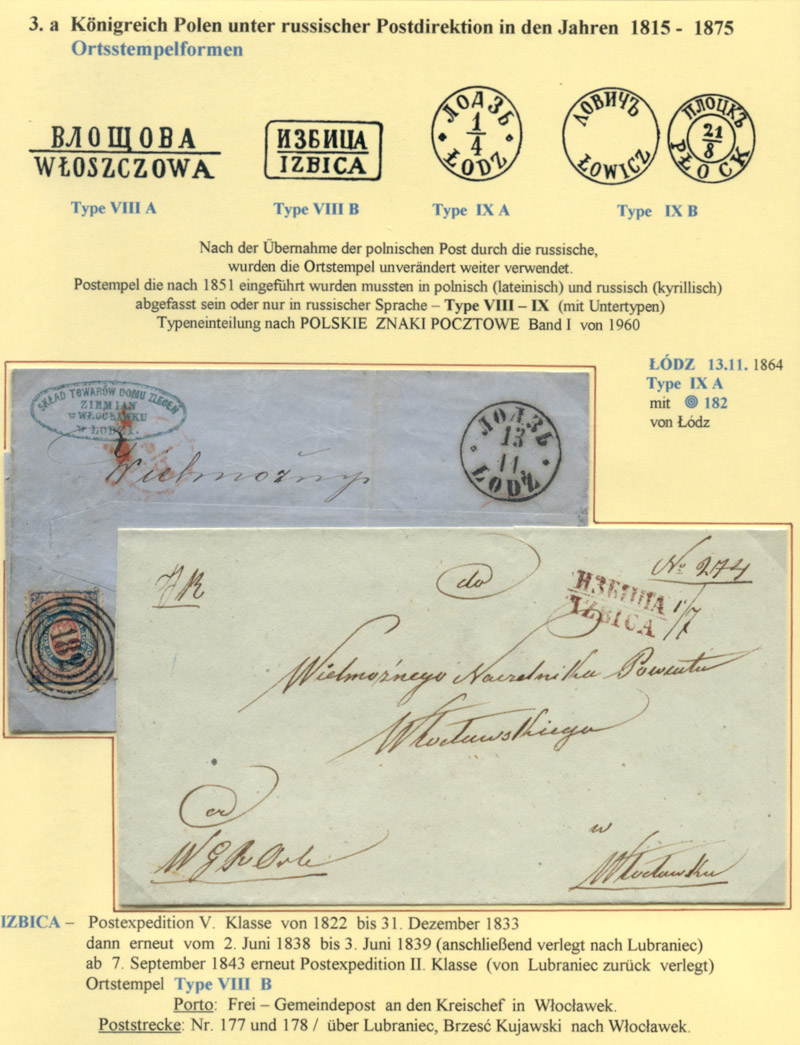 3. a Königreich Polen unter russischer Postdirektion in den Jahren 1815 - 1875
Ortsstempelformen
ВЛОЩОВА
WŁOSZCZOWA
ИЗБИЦА
IZBICA
ЛОДЗЬ
1/4
ŁODZ
ЛОВИЧЪ
ŁOWICZ
ПЛОЦКЪ
21/8
PŁOCK
Type VIII A
Type VIII B
Type IX A
Type IX B
Nach der Übernahme der polnischen Post durch die russische,
wurden die Ortstempel unverändert weiter verwendet.
Postempel die nach 1851 eingeführt wurden mussten in polnisch (lateinisch) und russisch (kyrillisch)
abgefasst sein oder nur in russischer Sprache – Type VIII – IX (mit Untertypen)
Typeneinteilung nach POLSKIE ZNAKI POCZTOWE Band I von 1960
ŁÓDZ 13.11. 1864
Type IX A
mit 182
von Łódz
SKŁAD TOWARÓW DOMU ZLECEŃ
ZIEMIAN
w WŁOCŁAWKU
w ŁODZI.
ЛОДЗЬ
13
11
ŁODZ
Wielmożny
182
№ 274
do
ИЗБИЦА
IZBICA
1/7
Wielmożnego Naczelnika Powiatu
Włocławskiego
od
w
Włocławku
IZBICA – Postexpedition V. Klasse von 1822 bis 31. Dezember 1833
dann erneut vom 2. Juni 1838 bis 3. Juni 1839 (anschließend verlegt nach Lubraniec)
ab 7. September 1843 erneut Postexpedition II. Klasse (von Lubraniec zurück verlegt)
Ortstempel Type VIII B
Porto: Frei – Gemeindepost an den Kreischef in Włocławek.
Poststrecke: Nr. 177 und 178 / über Lubraniec, Brzesć Kujawski nach Włocławek.